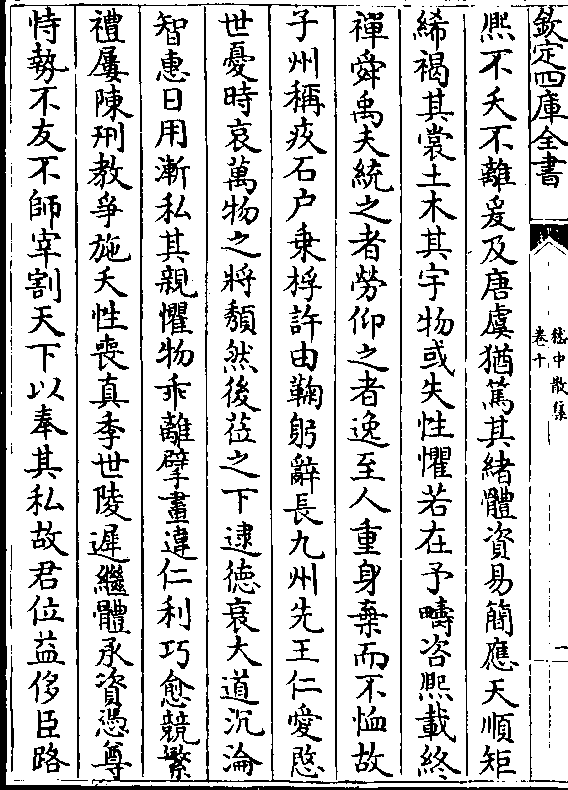 欽定四庫全書
嵇中散集
卷十
一
熈不夭不離爰及唐虞猶篤其緒體資易簡應天順矩
絺褐其裳土木其宇物或失性懼若在予疇咨熈載終
禪舜禹夫統之者勞仰之者逸至人重身棄而不恤故
子州稱疚石户乗桴許由鞠躬辭長九州先王仁愛愍
世憂時哀萬物之將頽然後莅之下逮德衰大道沉淪
智惠日用漸私其親懼物乖離擘畫違仁利巧愈競繁
禮屢陳刑教爭施夭性喪真季世陵遲繼體承資憑尊
恃勢不友不師宰割天下以奉其私故君位益侈臣路